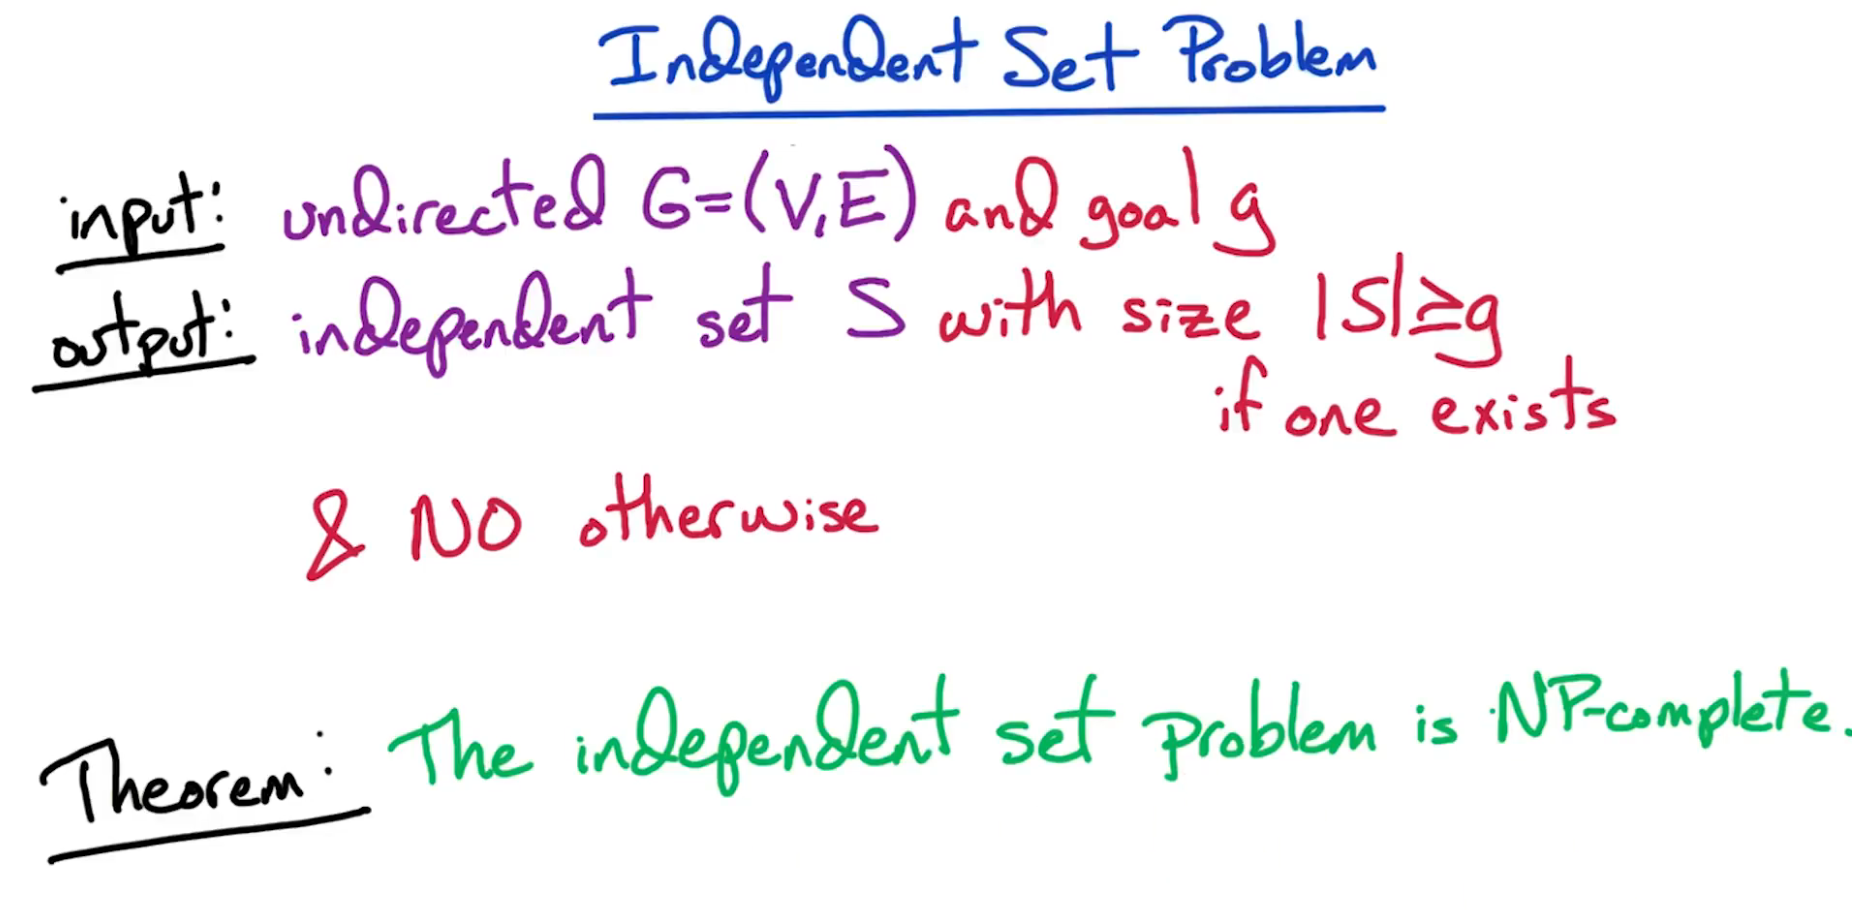 Independent Set Problem
input: undirected G=(V,E) and goal g
output: independent set S with size |S|≥g
if one exists
& NO otherwise
Theorem: The independent set problem is NP-complete.